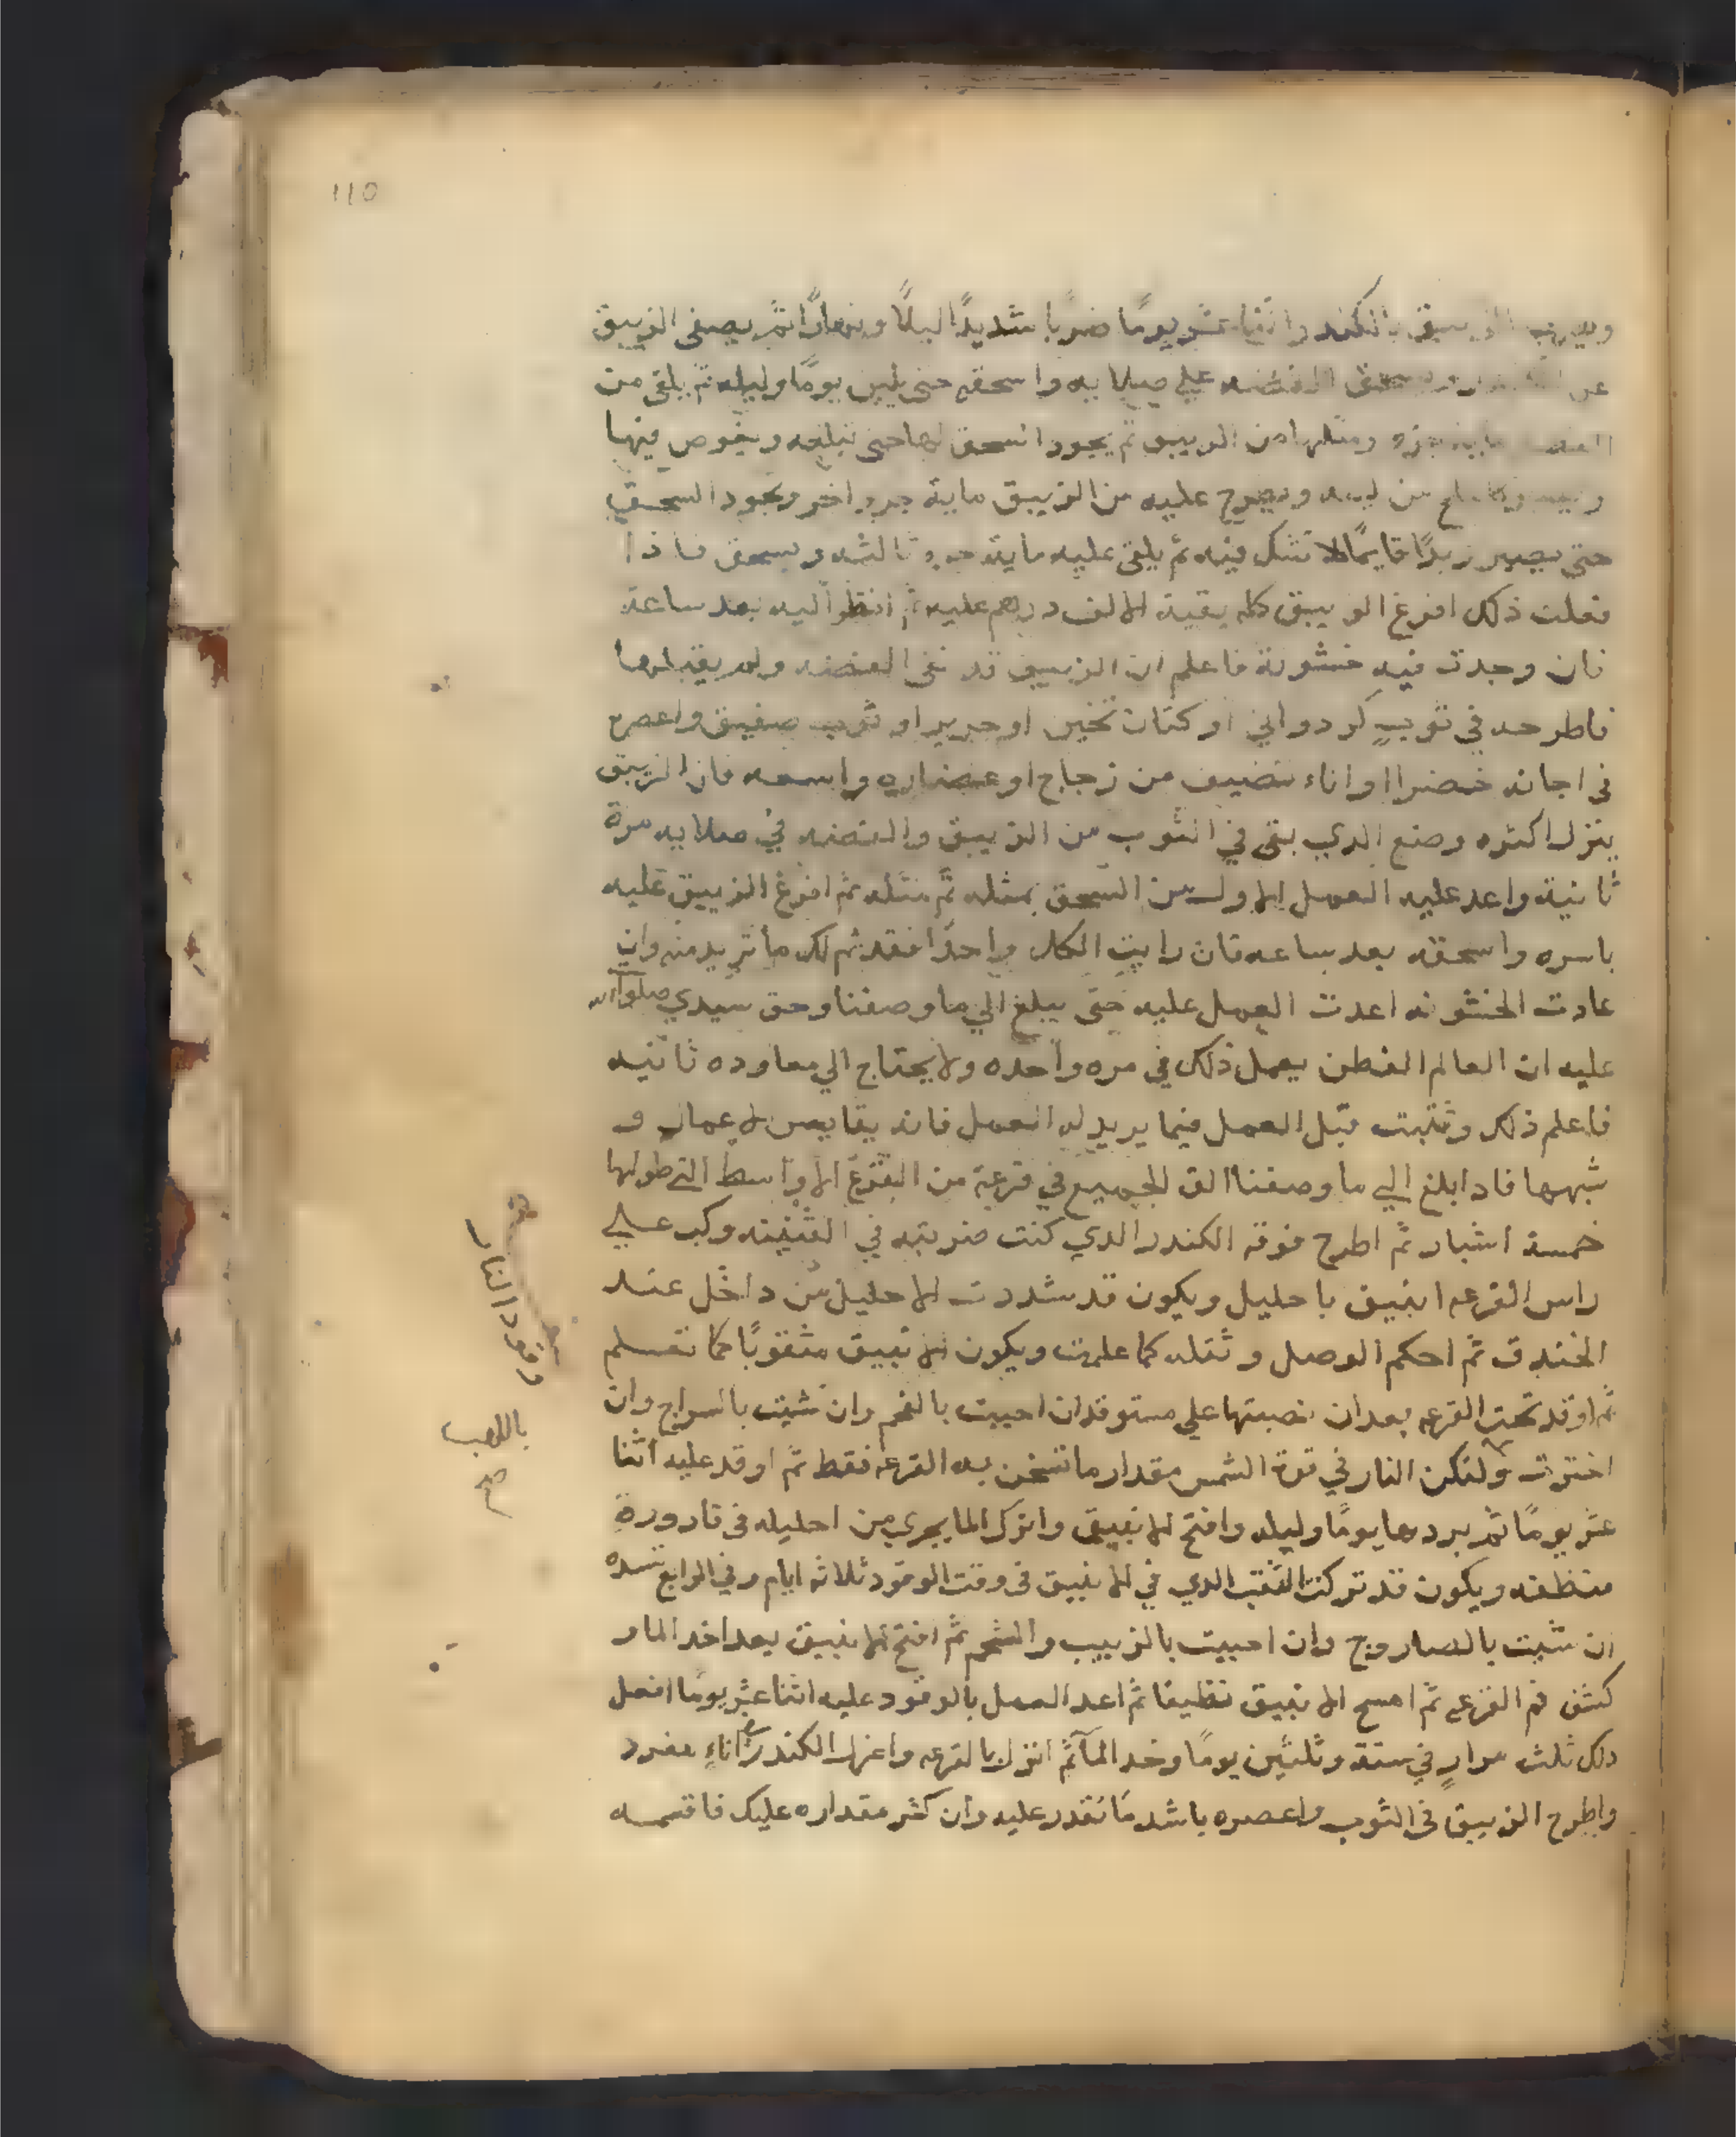 110
الزيبق بالكندر اثنا عشر يومًا ضربًا شديدًا ليلًا ونهارًا ثم يصفى الزيبق
عن ويسحق الفضه علي صلايه واسحقه حتى يلين يومًا وليله ثم يلقى من
ماية جزء ومثلها من الزيبق ثم يجود السحق لها حتى تبلعه ويغوص فيها
ويطرح عليه من الزيبق ماية جزو اخر ويجود السحق
حتى يصير زبدًا قايمًا لا تشك فيه ثم يلقى عليه ماية جزو ثالثه ويسحق فاذا
فعلت ذلك افرغ الزيبق كله بقية الالف درهم عليه ثم انظر اليه بعد ساعة
فان وجدت فيه خشونة فاعلم ان الزيبق قد نفى الفضه ولم يقبلها
فاطرحه في ثوبٍ كردواني او كتان ثخين او حرير او ثوب صفيق واعصره
في اجانه خضرا او اناء نضيف من زجاج او غضاره واسعه فان الزيبق
ينزل اكثره وضع الدي بقى في الثوب من الزيبق والفضه في صلايه مرة
ثانية واعد عليه العمل الاول من السحق بمثله ثم مثله ثم افرغ الزيبق عليه
باسره واسحقه بعد ساعه فان رايت الكل واحدًا فقد تم لك ما تريد منه وان
عادت الخشونه اعدت العمل عليه حتى يبلغ الي ما وصفنا وحق سيدي صلوات الله
عليه ان العالم الفطن يعمل ذلك في مره واحده ولا يحتاج الي معاوده ثانيه
فاعلم ذلك وتثبت قبل العمل فيما يريد له العمل فانه يقايس الاعمال و
شبهها فادا بلغ الي ما وصفنا الق الجميع في قرعة من القرع الاواسط التي طولها
خمسة اشبار ثم اطرح فوقه الكندر الدي كنت ضربته في القنينه وركب علي
راس القرعه انبيق باحليل ويكون قد شددت الاحليل من داخل عند
الخندق ثم احكم الوصل وثقله كما علمت ويكون الانبيق مثقوبًا كما تعلم
ثم اوقد تحت القرعه بعد ان نصبتها علي مستوقد ان احببت بالفحم وان شيت بالسراج وان
اخترت ولتكن النار في قوة الشمس مقدار ما تسخن به القرعه فقط ثم اوقد عليه اثنا
عشر يومًا ثم بردها يومًا وليله وافتح الانبيق واترك الما يجري من احليله في قارورة
منظفه ويكون قد تركت الثقب الدي في الانبيق في وقت الوقود ثلاثه ايام وفي الرابع تسده
ان شيت بالصاروج وان احببت بالزبيب والشحم ثم افتح الانبيق بعد اخد الما و
كشف فم القرعه ثم امسح الانبيق نظيفا ثم اعد العمل بالوقود عليه اثنا عشر يومًا افعل
دلك ثلث مرارٍ في ستة وثلثين يومًا وخد المآ ثم انزل بالقرعه واعزل الكندر في اناءٍ مفرد
واطرح الزيبق في الثوب واعصره باشد ما تقدر عليه وان كثر مقداره عليك فاقسمه
وقود النار
باللهب
صح